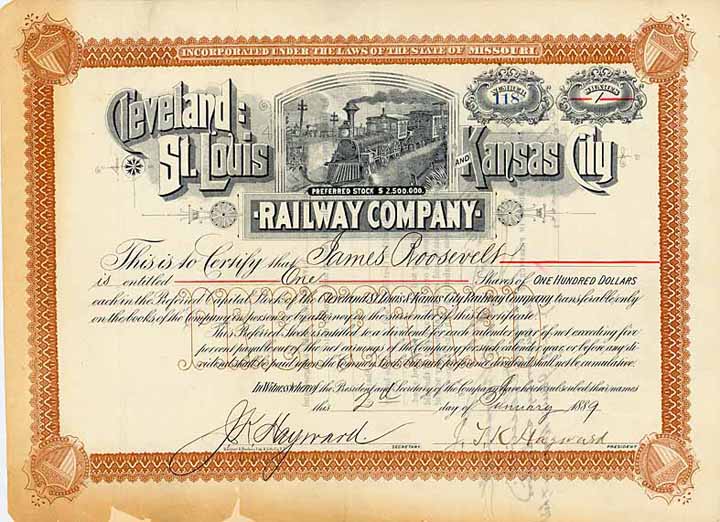 INCORPORATED UNDER THE LAWS OF THE STATE OF MISSOURI
NUMBER 118
1
Cleveland:
St. Louis
AND Kansas City
PREFERRED STOCK $2,500,000.
RAILWAY COMPANY
This is to Certify that James Roosevelt
is entitled One Shares of ONE HUNDRED DOLLARS
each in the Preferred Capital Stock of the Cleveland St. Louis & Kansas City Railway Company, transferable only
on the books of the Company in person or by attorney in the surrender of this Certificate.
This Preferred Stock is entitled to a dividend for each calendar year of not exceeding five
percent payable out of the net earnings of the Company for such calendar year, or before any di-
vidend shall be paid upon the Common Stock, but such preference dividends shall not be cumulative.
In Witness whereof the President and Secretary of the Company have hereunto subscribed their names
this 2d day of January 1889
J. K. Hayward SECRETARY J. T. K. Hayward PRESIDENT